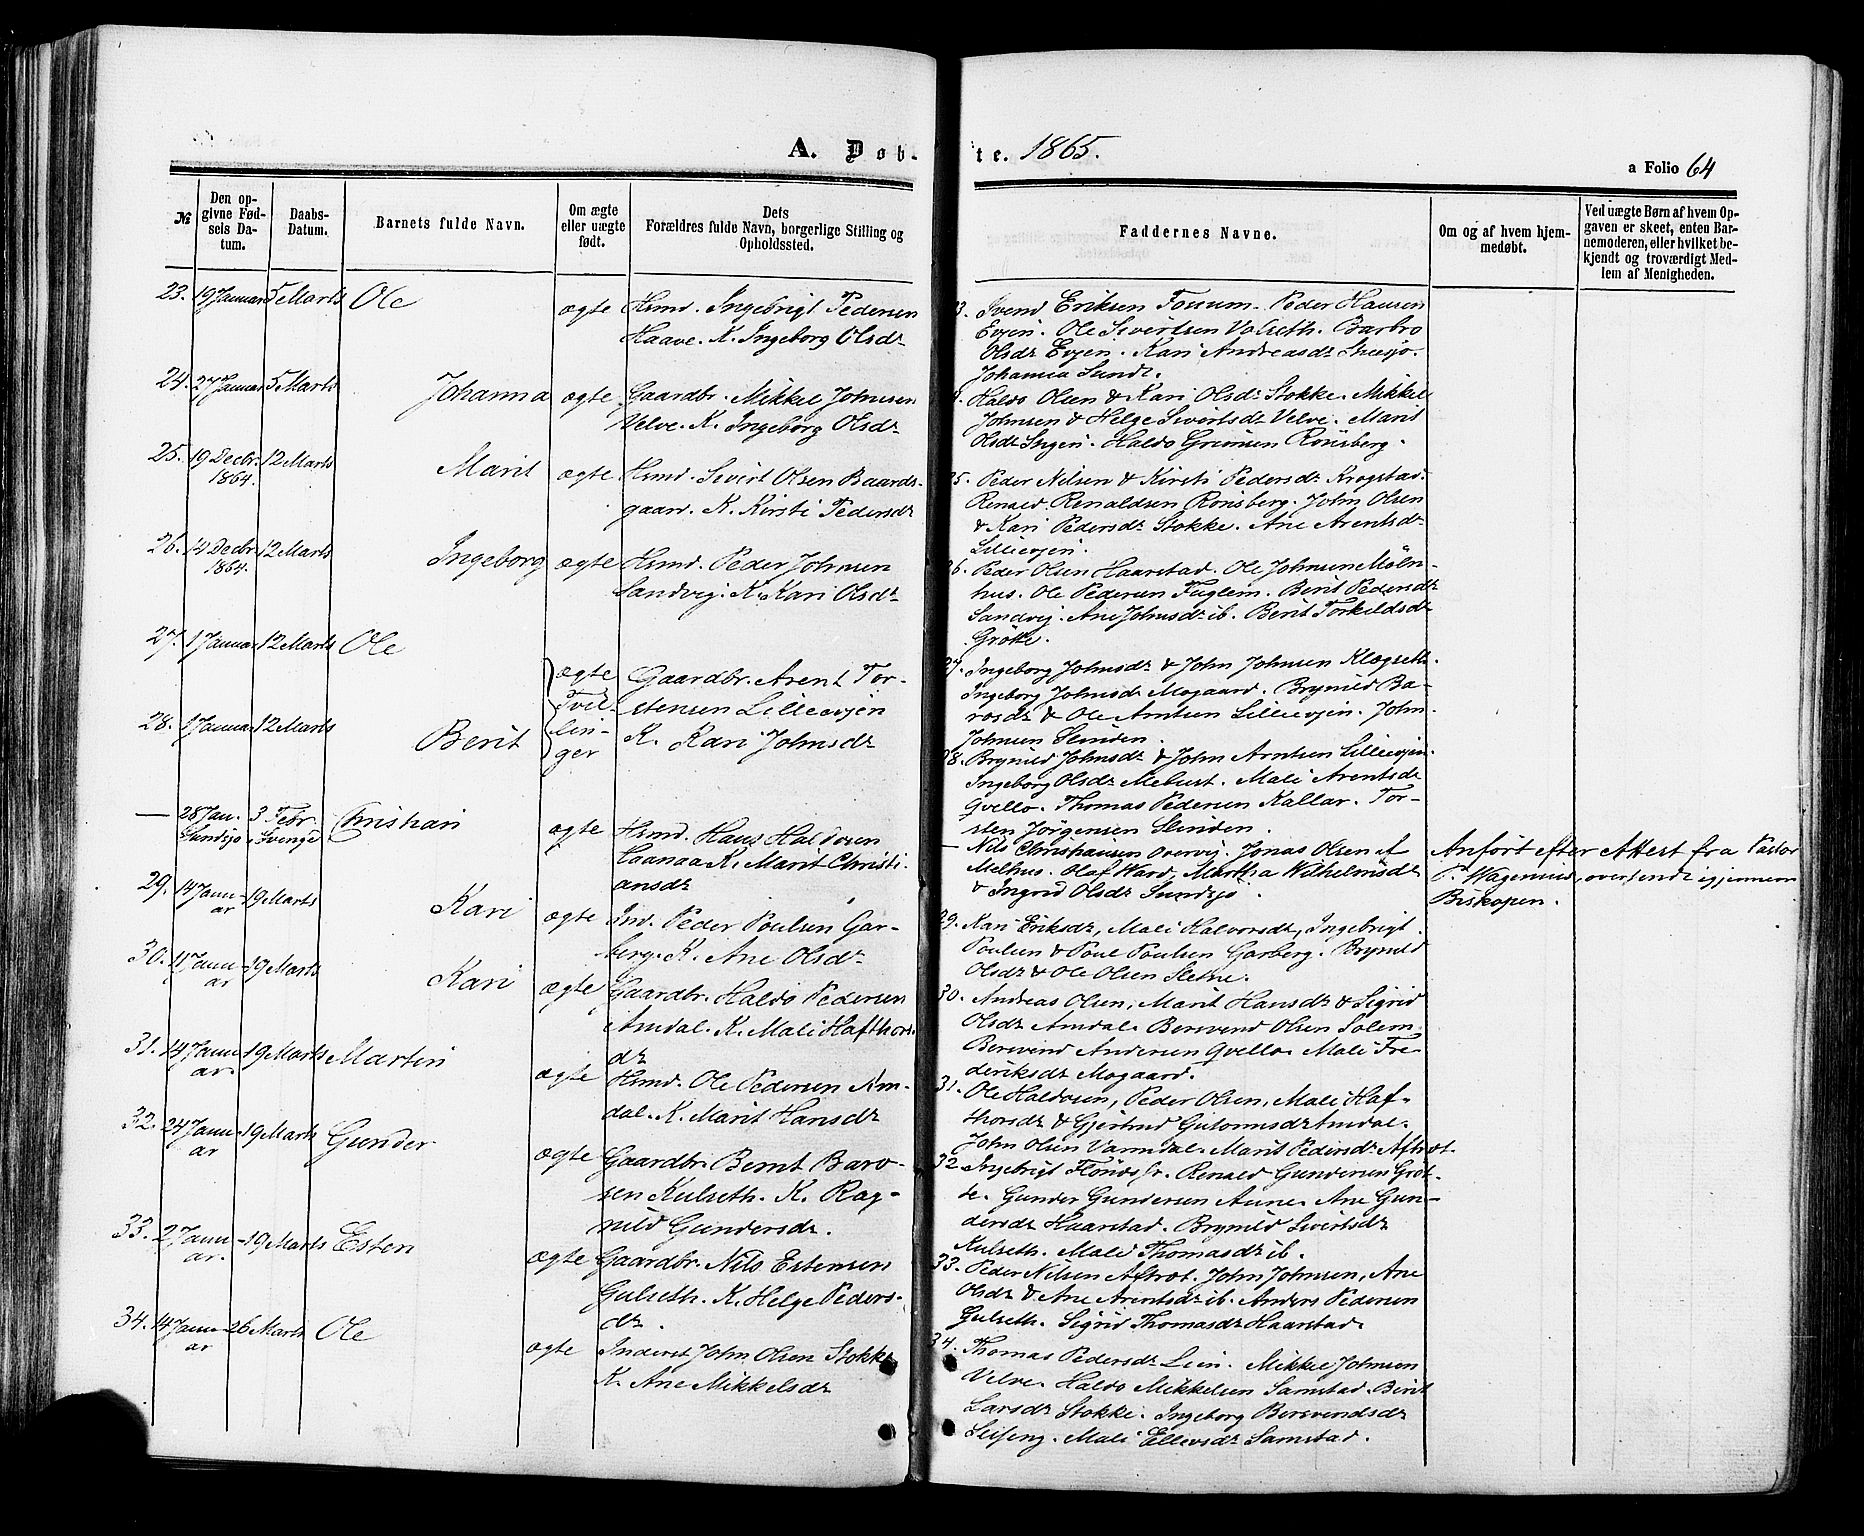 A. Døb-
te. 1865.
a Folio 64
№
Den op-
givne Fød-
sels Da-
tum.
Daabs-
Datum.
Barnets fulde Navn.
Om ægte
eller uægte
født.
Dets
Forældres fulde Navn, borgerlige Stilling og
Opholdssted.
Faddernes Navne.
Om og af hvem hjem-
medøbt.
Ved uægte Børn af hvem Op-
gaven er skeet, enten Bar-
nemoderen, eller hvilket be-
kjendt og troværdigt Med-
lem af Menigheden.
23. 19 Januar 5 Marts Ole ægte Hsmd. Ingebrigt Pedersen
Haave. K. Ingeborg Olsdr
Svend Eriksen Fossum. Peder Hansen
Evjen. Ole Sivertsen Volseth. Barbro
Olsdr Evjen. Kari Andreasdr
Johanna
24. 27 Januar 5 Marts Johanna ægte Gaardbr. Mikkel Johnsen
Velve. K. Ingeborg Olsdr
Haldo Olsen & Kari Olsdr Stokke. Mikkel
Johnsen & Helge Sivertsdr Velve. Marit
Olsdr Haldo Rönsberg.
25. 19 Decbr. 12 Marts Marit ægte Hsmd. Sivert Olsen Baards-
1864.
gaard. K. Kirsti Pedersdr
25. Peder Nilsen & Kirsti Pedersdr Krogstad.
Renald Renaldsen Rönsberg. John Olsen
& Kari Pedersdr Stokke. Ane Arentsdr
Lillievjen.
26. 14 Decbr. 12 Marts Ingeborg ægte Hsmd. Peder Johnsen
1864.
Sandvig. K. Kari Olsdr
26. Peder Olsen Haarstad. Ole Johnsen Möln-
hus. Ole Pedersen Fuglem. Berit Pedersdr
Sandvig. Ane Johnsdr ib. Berit Torkildsdr
Grötte.
27. 1 Januar 12 Marts Ole
ægte Gaardbr. Arent Tor-
Tvil- stensen Lillievjen
28. 1 Januar 12 Marts Berit
lin- K. Kari Johnsdr
ger
27. Ingeborg Johnsdr & John Johnsen Klægseth.
Ingeborg Johnsd Mogaard. Brynild Ba-
rosdr & Ole Arntsen Lillievjen. John
Johnsen Slinden.
28. Brynild Johnsdr & John Arntsen Lillievjen.
Ingeborg Olsdr Mebust. Mali Arentsdr
Qvello. Thomas Pedersen Kallar. Tor-
sten Jörgensen Slinden.
— 28 Jan. 3 Febr. Christian ægte Hsmd. Hans Haldosen
Sundsjö i Svenge
Laanaa K. Marit Christi-
ansdr
— Nils Christiansen Overvig. Jonas Olsen af
Melhus. Olaf Ward, Martha Wilhelmsdr
& Ingrid Olsdr Sundsjö
Anfört efter Attest fra Pastor
P. oversendt igjennem
Biskopen.
29. 14 Janu- 19 Marts Kari ægte Ind. Peder Poulsen Gar-
ar
berg. K. Ane Olsdr
29. Kari Eriksdr, Mali Halvorsdt, Ingebrigt
Poulsen & Poul Poulsen Garberg. Brynild
Olsdr & Ole Olsen Sletne.
30. 11 Janu- 19 Marts Kari ægte Gaardbr. Haldo Pedersen
ar
Amdal. K. Mali Hafthors-
dr
30. Andreas Olsen, Marit Hansdr & Sigrid
Olsdr Amdal. Beresvend Olsen Solem.
Beresvend Andersen Qvello. Mali Fre-
deriksdr Mogaard.
31. 14 Janu- 19 Marts Martin ægte Hsmd. Ole Pedersen Am-
ar.
dal. K. Marit Hansdr
31. Ole Haldosen, Peder Olsen, Mali Haf-
thorsdr & Gjertrud Amdal.
John Olsen Varmdal. Marit Pedersdr Aftret.
32. 24 Janu- 19 Marts Gunder ægte Gaardbr. Bernt Baro-
ar
sen Kulseth. K. Rag-
nild Gundersdr.
32. Ingebrigt Renald Gundersen Gröt-
te. Gunder Gundersen Aune. Ane Gun-
dersdr Haarstad. Brynild Sivertsdr
Kulseth. Mali Thomasdr ib.
33. 2 Janu- 19 Marts Esten ægte Gaardbr. Nils Estensen
ar.
Gulseth. K. Helge Peders-
dr.
33. Peder Nilsen Aftret. John Johnsen, Ane
Olsdr & Ane Arentsdr ib. Anders Pedersen
Gulseth. Sigrid Thomasdr Haarstad.
34. 14 Janu- 26 Marts Ole ægte Inderst John Olsen Stokke
ar
K. Ane Mikkelsdr
34. Thomas Pedersdr Lien. Mikkel Johnsen
Velve. Haldo Mikkelsen Samstad. Berit
Larsdr Stokke. Ingeborg Beresvendsdr
Mali Ellevsdr Samstad.